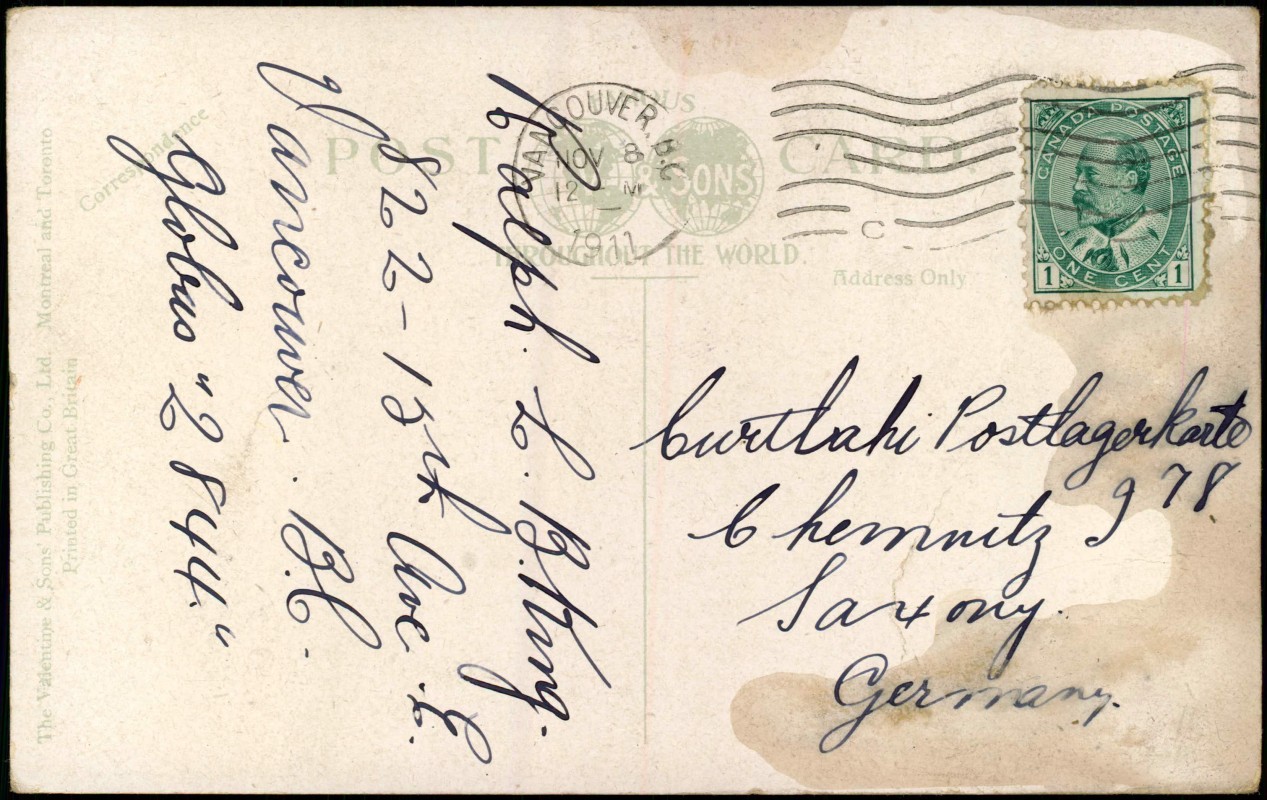 Ralph. L. B. King.
822-13th Ave. E.
Vancouver. B.C.
Globus "2844."
Correspondence
The Valentine & Sons' Publishing Co., Ltd. Montreal and Toronto
Printed in Great Britain
POST CARD
& SONS
THROUGHOUT THE WORLD.
Address Only
VANCOUVER, B.C.
NOV 8
12 M
1911
C
CANADA POSTAGE
1 ONE CENT 1
Postlagerkarte
978
Chemnitz
Saxony.
Germany.